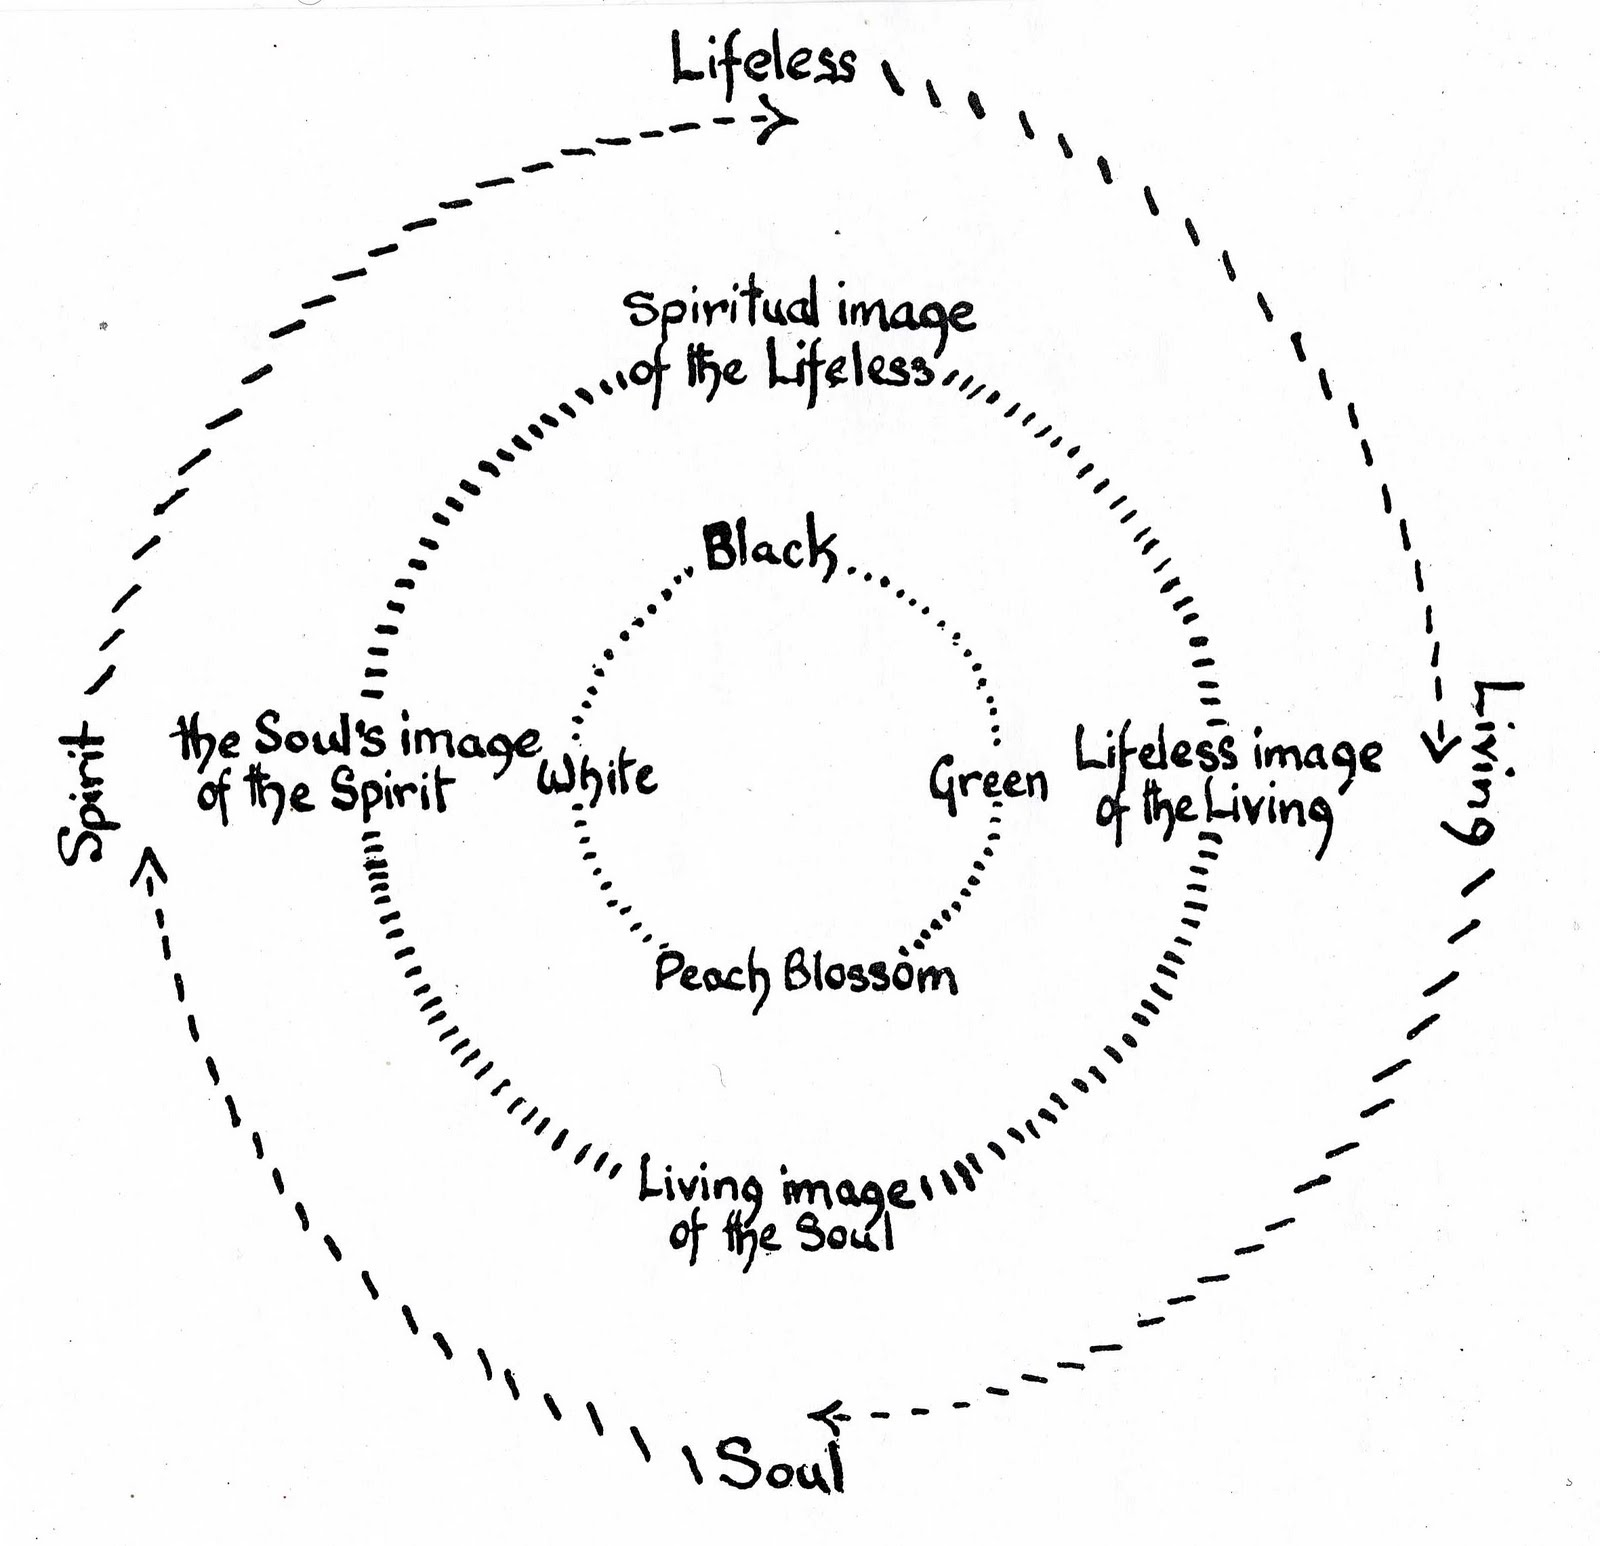 Lifeless
Spiritual image
of the Lifeless
Black
Spirit
the Soul's image
of the Spirit
White
Green
Lifeless image
of the Living
Living
Peach Blossom
Living image
of the Soul
Soul